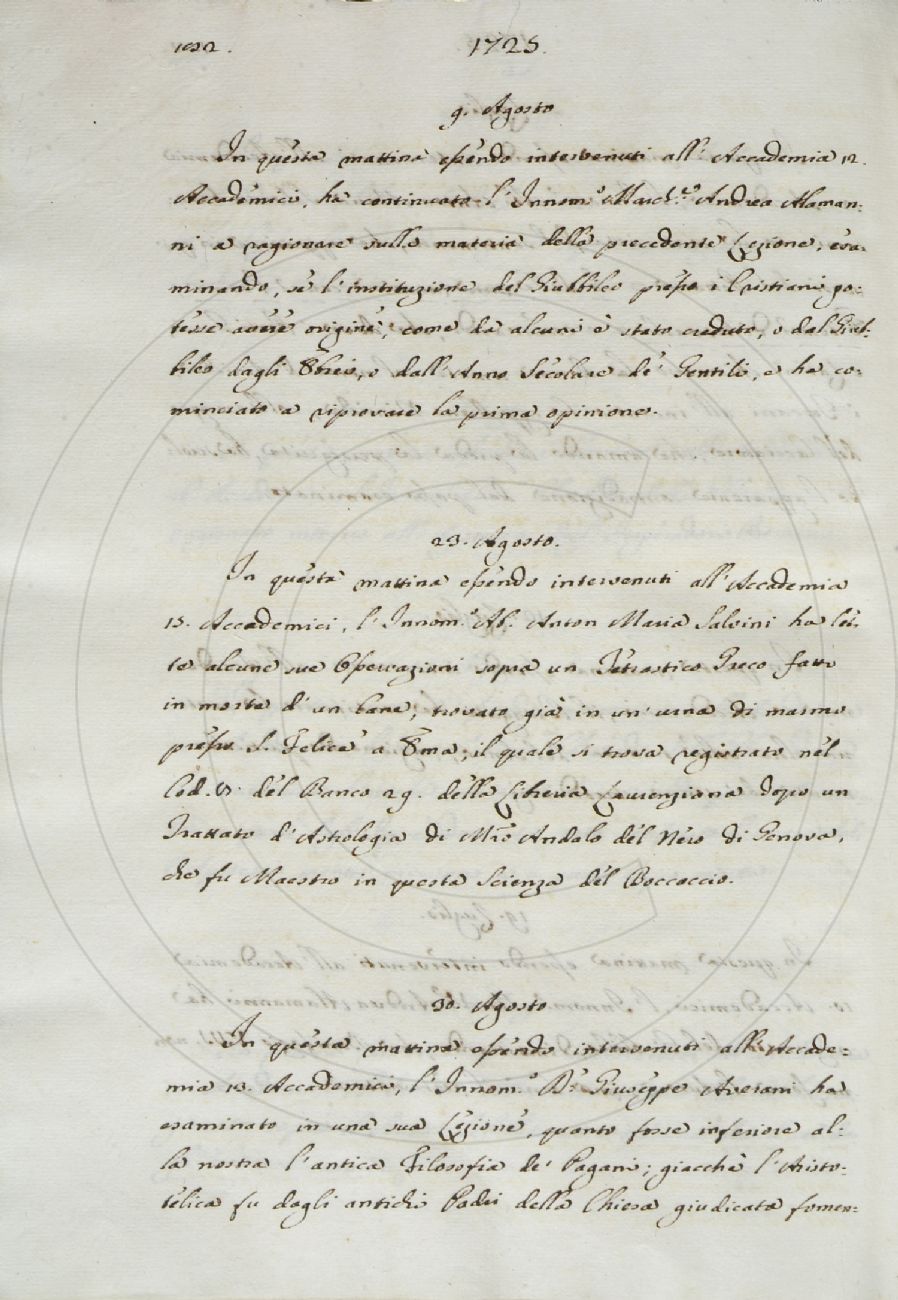 1032. 1725.
9. Agosto
In questa mattina essendo intervenuti all'Accademia 12.
Accademici, ha continuato l'Innom.º March.ᵉ Andrea Alaman-
ni a ragionare sulla materia della precedente Lezione, esa-
minando, se l'instituzione del Giubbileo presso i Cristiani po-
tesse avere origine, come da alcuni è stato creduto, o dal Giub-
bileo dagli Ebrei, o dall'Anno Secolare de' Gentili, e ha co-
minciato a riprovare la prima opinione.
23. Agosto.
In questa mattina essendo intervenuti all'Accademia
15. Accademici, l'Innom.º Ab.ᵉ Anton Maria Salvini ha let-
to alcune sue Osservazioni sopra un Tetrastico Greco fatto
in morte d'un Cane, trovato già in un'urna di marmo
presso S. Felice a Ema; il quale si trova registrato nel
Cod. VI. del Banco 29. della Libreria Laurenziana dopo un
Trattato d'Astrologia di Mrõ Andalo del Nero di Genova,
che fu Maestro in questa Scienza del Boccaccio.
30. Agosto
In questa mattina essendo intervenuti all'Accade-
mia 13. Accademici, l'Innom.º D.ʳ Giuseppe Averani ha
esaminato in una sua Lezione, quanto fosse inferiore al-
la nostra l'antica Filosofia de' Pagani; giacchè l'Aristo-
telica fu dagli antichi Padri della Chiesa giudicata fomen-